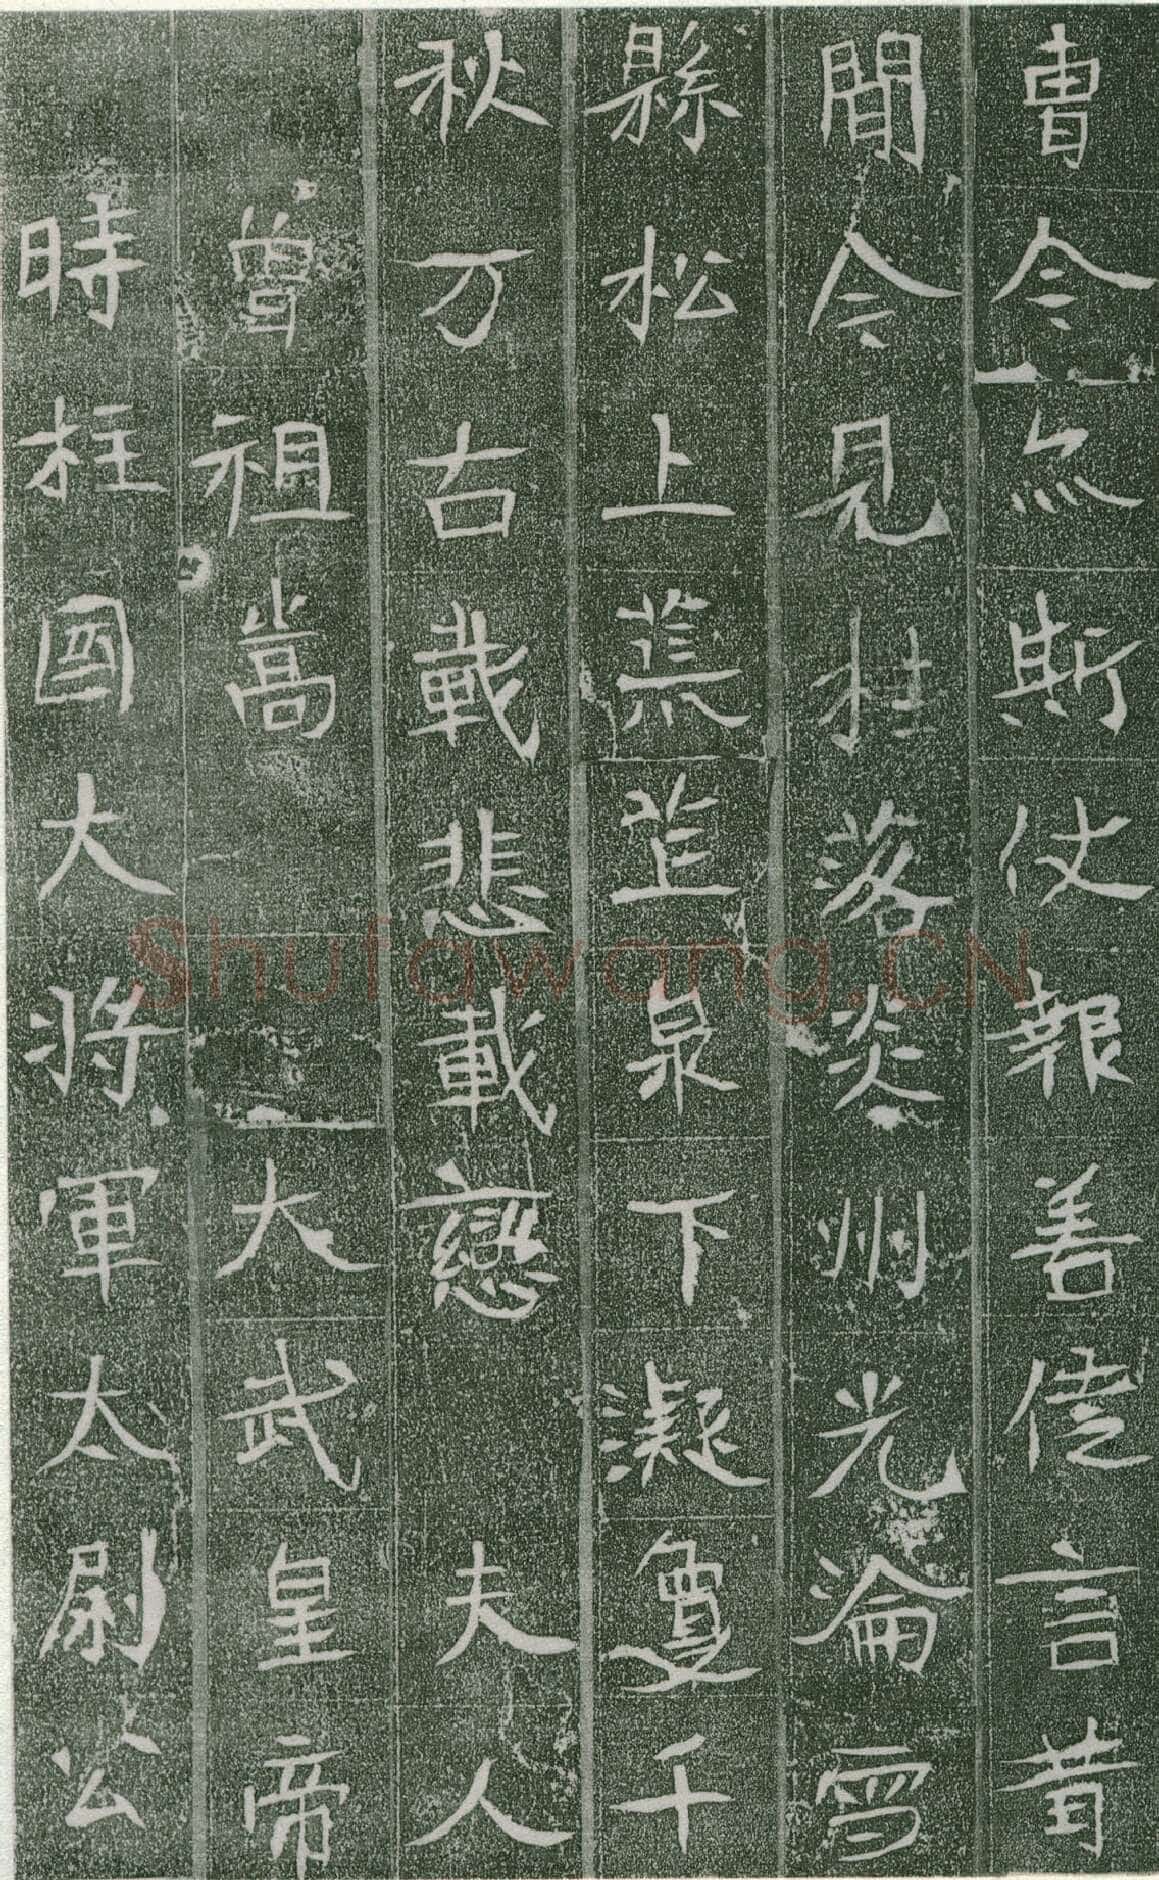 曺今尒斯仗報善徒言昔
聞今見桂落炎州光淪雪
縣松上荒芷泉下凝夐千
秋万古載悲載戀 夫人
曾祖嵩 大武皇帝
時柱国大將軍太尉公
Shufawang.CN